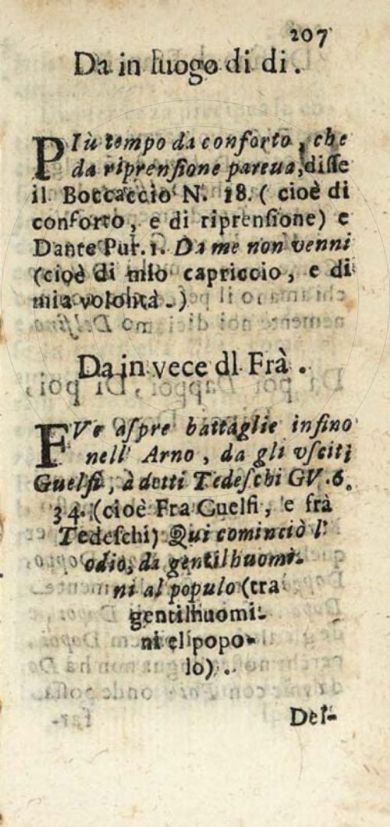 207
Da in luogo di di.
PIù tempo da conforto, che
da riprensione pareua, disse
il Boccaccio N. 18. (cioè di
conforto, e di riprensione) e
Dante Pur. 1. Da me non venni
(cioè di mio capriccio, e di
mia volontà.)
Da in vece dl Frà.
FVe aspre battaglie infino
nell' Arno, da gli vsciti
Guelfi, à detti Tedeschi GV. 6.
34. (cioè Fra Guelfi, e frà
Tedeschi) Qui cominciò l'
odio, da gentilhuomi-
ni al populo (tra
gentilhuomi-
ni el popo-
lo).
Del-